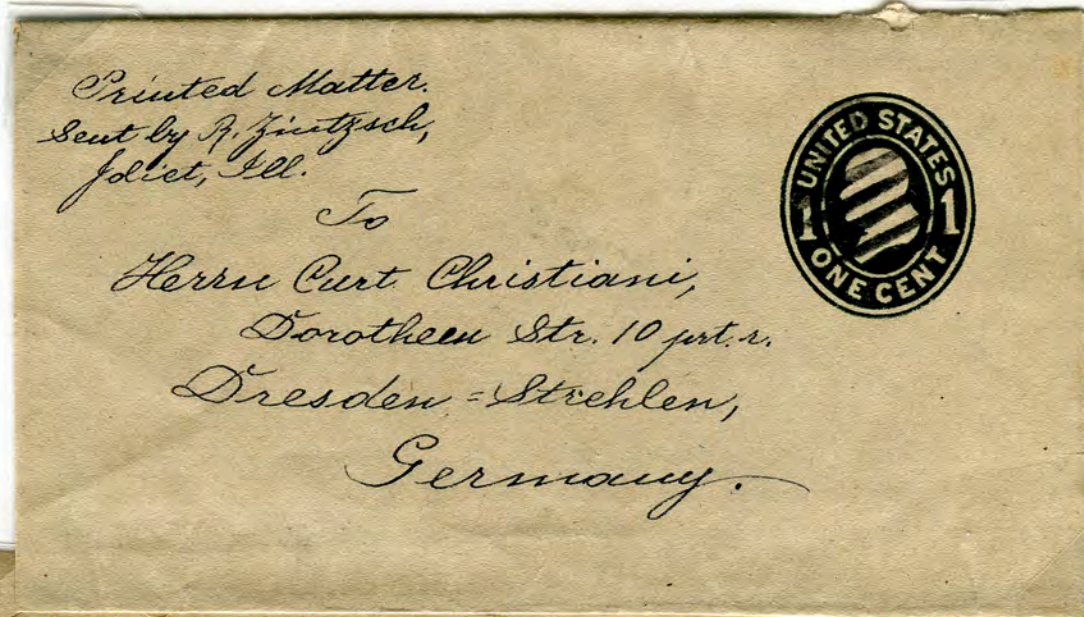 Printed Matter.
Sent by R. Zintzsch,
Joliet, Ill.
To
Herrn Curt Christiani,
Dorotheen Str. 10 prt. r.
Dresden = Strehlen,
Germany.
UNITED STATES
1 1
ONE CENT